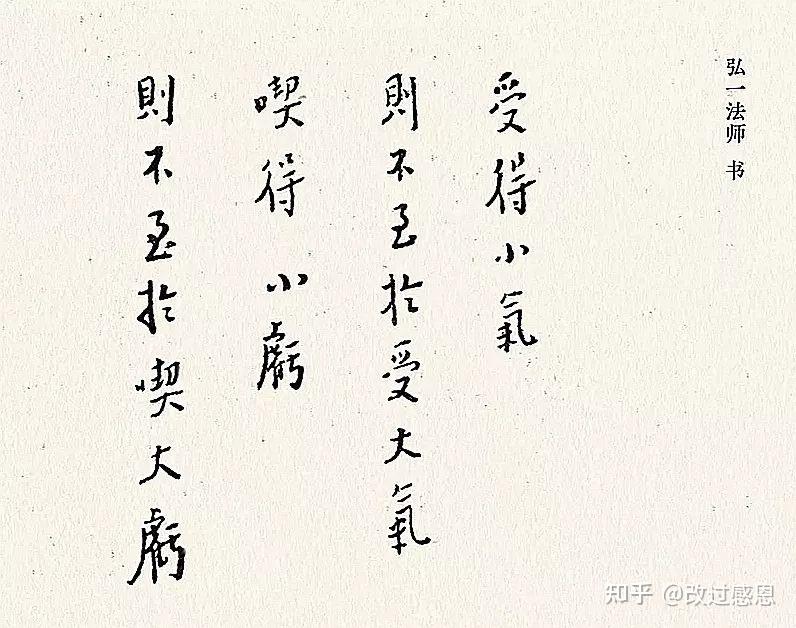 弘一法师 书
受得小氣
則不至於受大氣
喫得小虧
則不至於喫大虧
知乎 @改过感恩